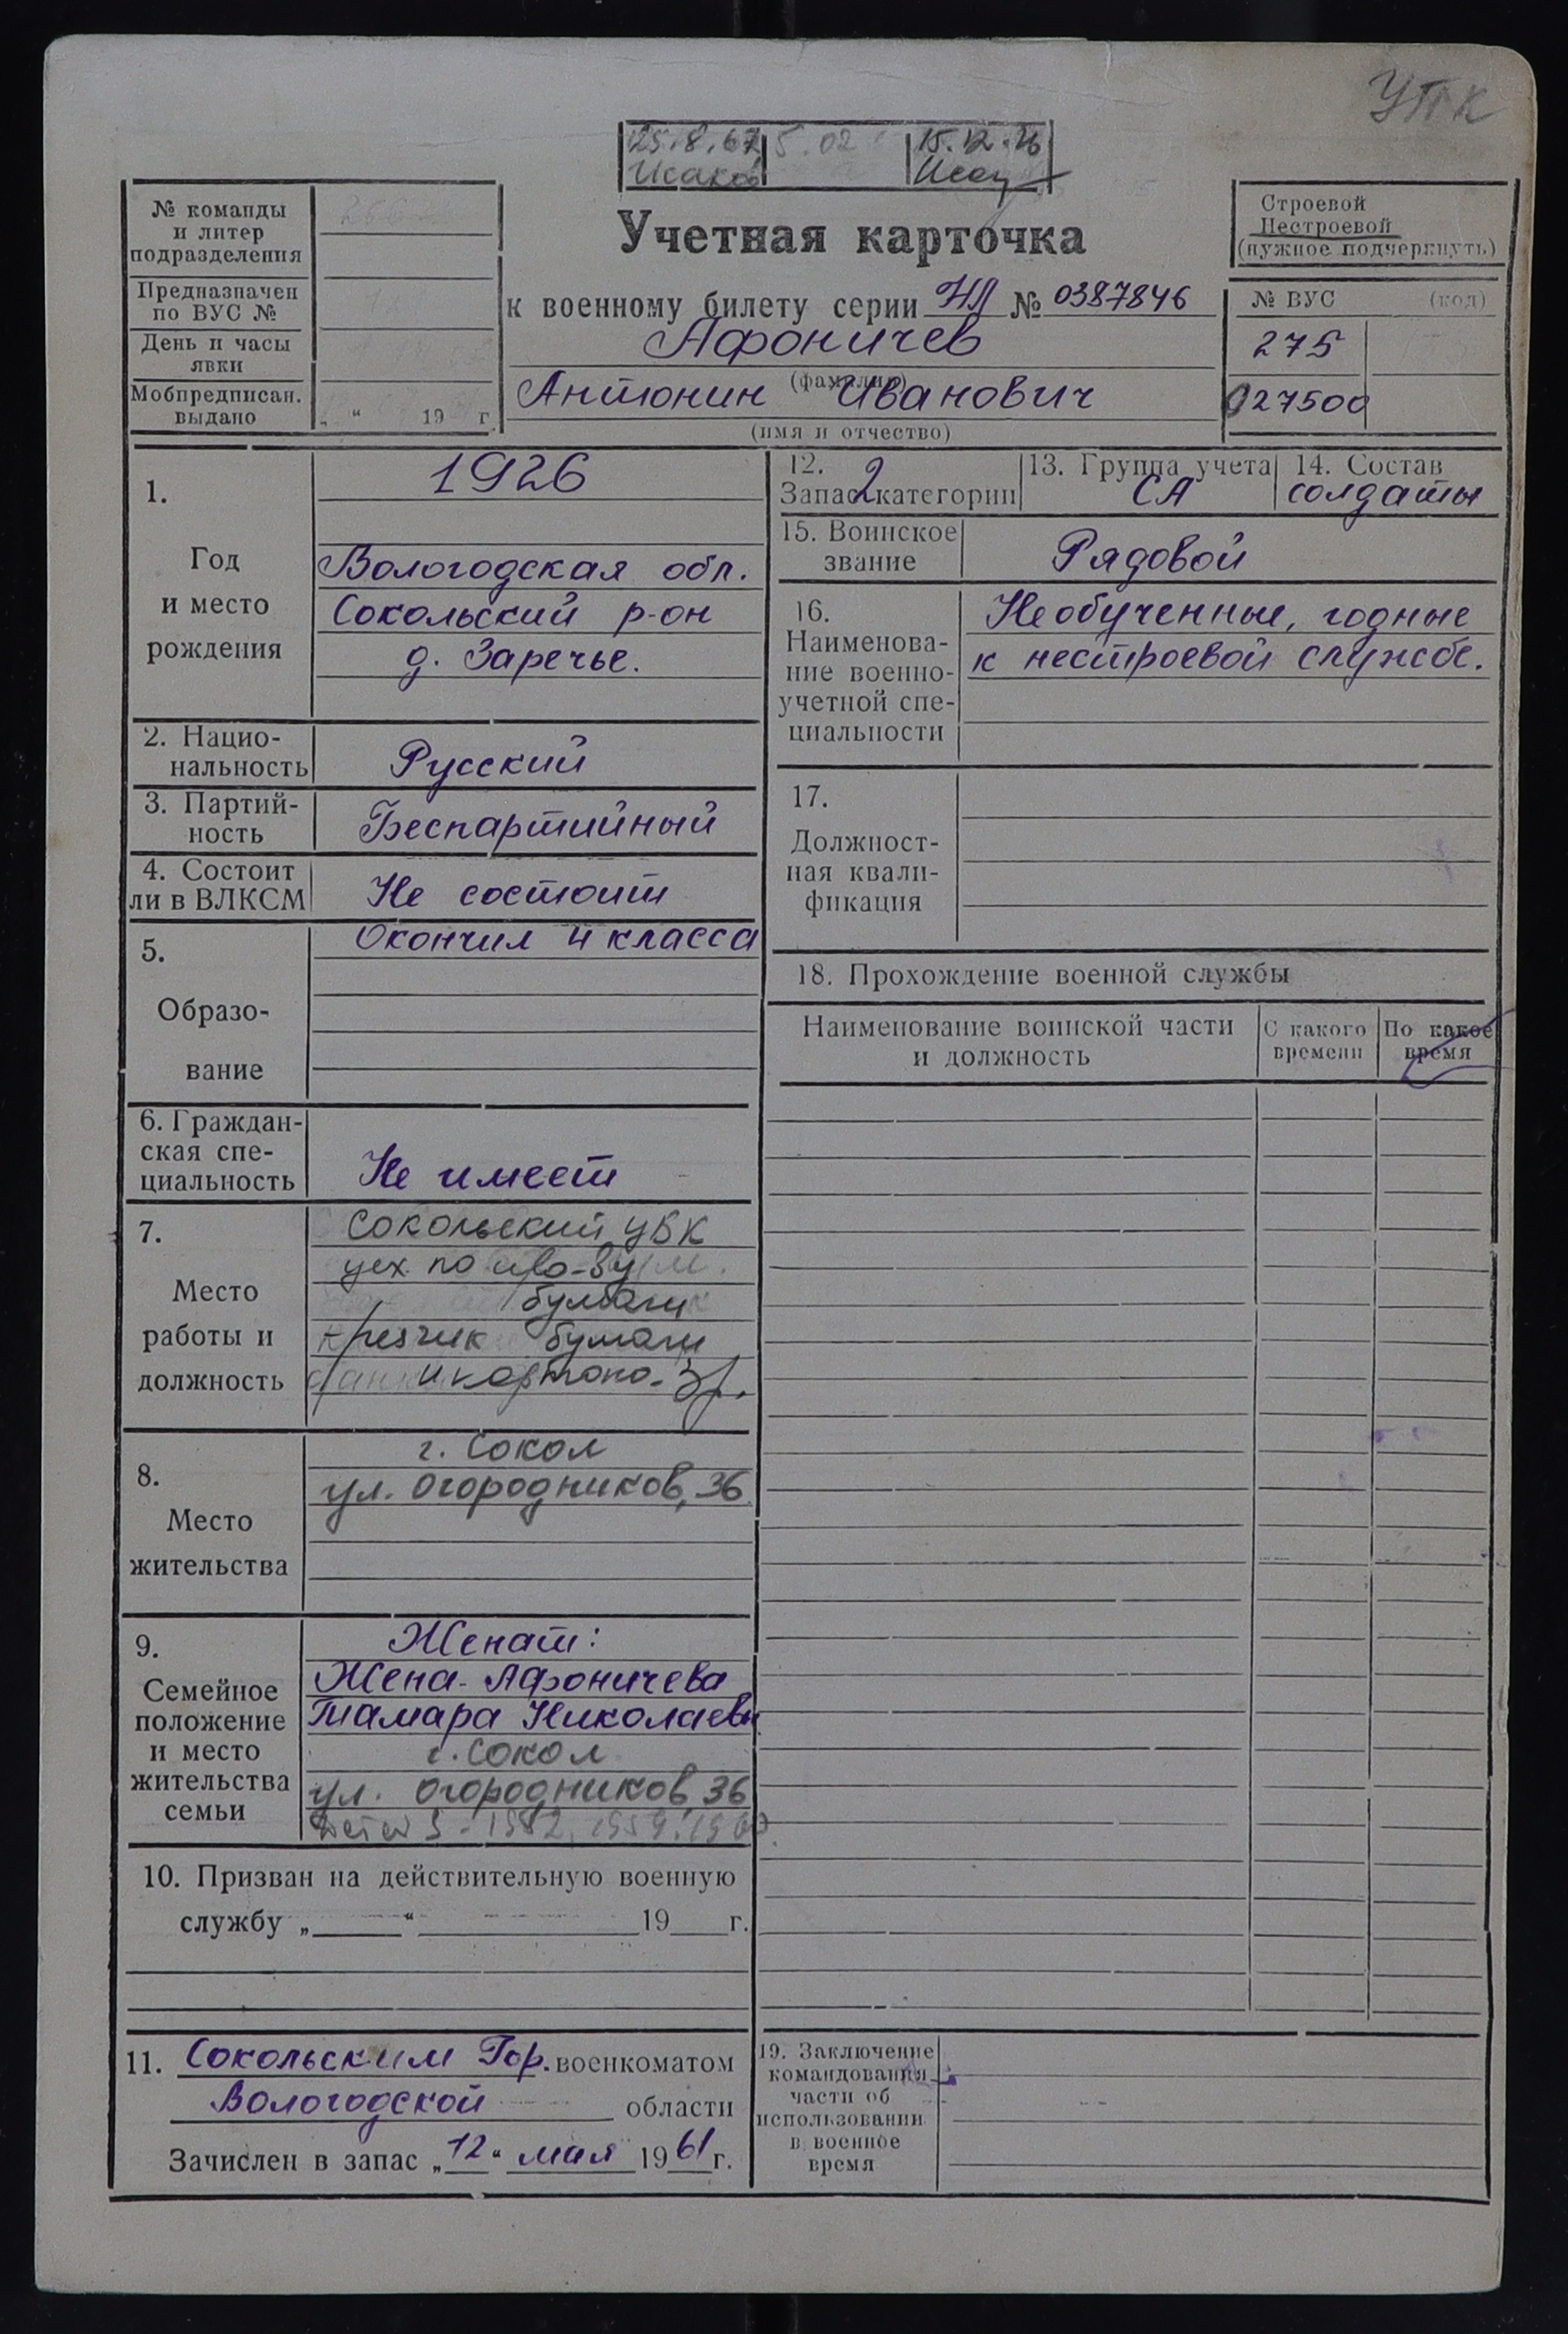 УПК
25.8.67 5.02 15.12.76
Исаков
№ команды
и литер
подразделения
Предназначен
по ВУС №
День и часы
явки
Мобпредписан.
выдано „ “ 19 г.
Учетная карточка
к военному билету серии НЛ № 0387846
Афоничев
(фамилия)
Антонин Иванович
(имя и отчество)
Строевой
Нестроевой
(нужное подчеркнуть)
№ ВУС (код)
275
027500
1.
Год
и место
рождения
1926
Вологодская обл.
Сокольский р-он
д. Заречье.
2. Нацио-
нальность
Русский
3. Партий-
ность
Беспартийный
4. Состоит
ли в ВЛКСМ
Не состоит
5.
Образо-
вание
Окончил 4 класса
6. Граждан-
ская спе-
циальность
Не имеет
7.
Место
работы и
должность
Сокольский ЦБК
цех по
бумаги
резчик бумаги
и картона
8.
Место
жительства
г. Сокол
ул. Огородников, 36
9.
Семейное
положение
и место
жительства
семьи
Женат:
Жена - Афоничева
Тамара Николаевн
г. Сокол
ул. Огородников 36
1952, 1959, 1960
10. Призван на действительную военную
службу „ “ 19 г.
11. Сокольским Гор. военкоматом
Вологодской области
Зачислен в запас „12“ мая 1961 г.
12.
Запас 2 категории
13. Группа учета
СА
14. Состав
солдаты
15. Воинское
звание
Рядовой
16.
Наименова-
ние военно-
учетной спе-
циальности
Необученные, годные
к нестроевой службе.
17.
Должност-
ная квали-
фикация
18. Прохождение военной службы
Наименование воинской части
и должность
С какого
времени
По какое
время
19. Заключение
командования
части об
использовании
в военное
время